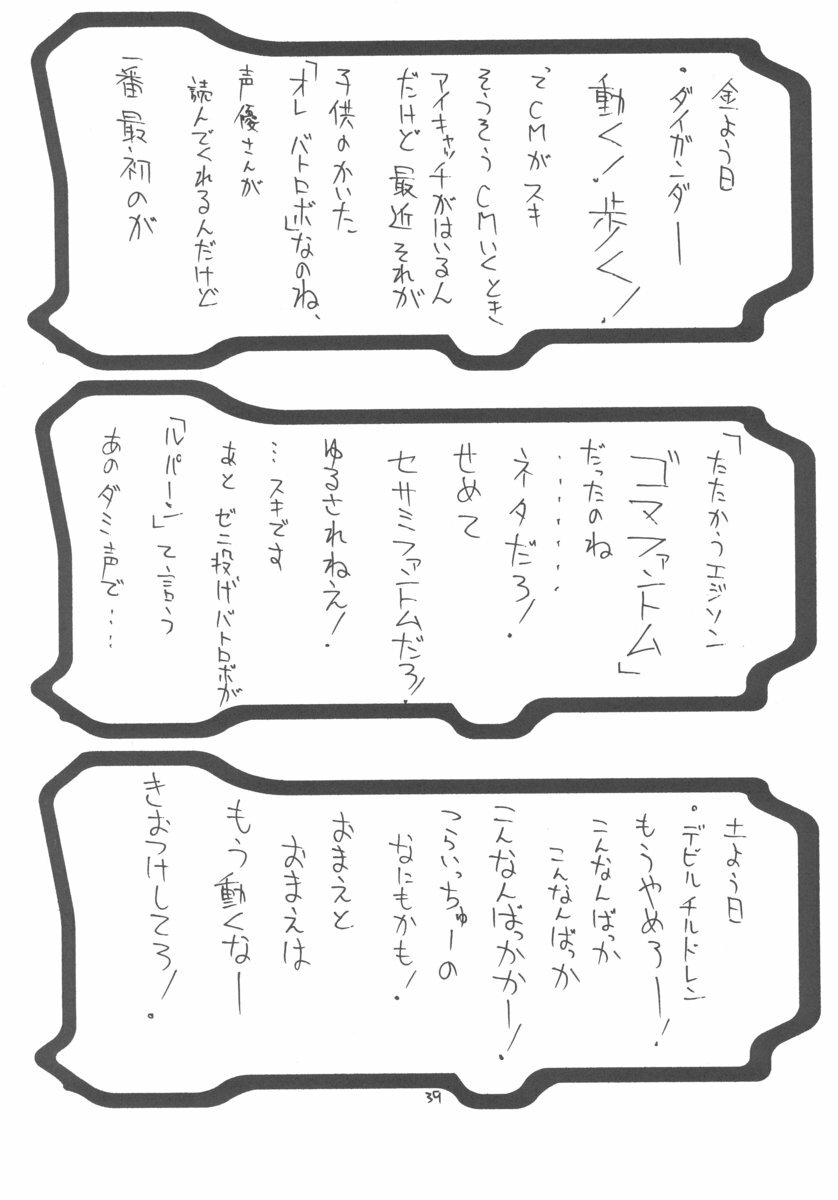 金よう日
・ダイガンダー
動く!歩く!
でCMがスキ
そうそうCMいくとき
アイキャッチがはいるん
だけど最近それが
子供のかいた
「オレバトロボ」なのね、
声優さんが
読んでくれるんだけど
一番最初のが
「たたかうエジソン
ゴマファントム」
だったのね
・・・・・・・
ネタだろ!
せめて
セサミファントムだろ!
ゆるされねえ!
…スキです
あとゼニ投げバトロボが
「ルパーン」て言う
あのダミ声で……
土よう日
・デビルチルドレン
もうやめろー!
こんなんばっか
こんなんばっか
こんなんばっかかー!
つらいっちゅーの
なにもかも!
おまえと
おまえは
もう動くなー
きおつけしてろ!
39